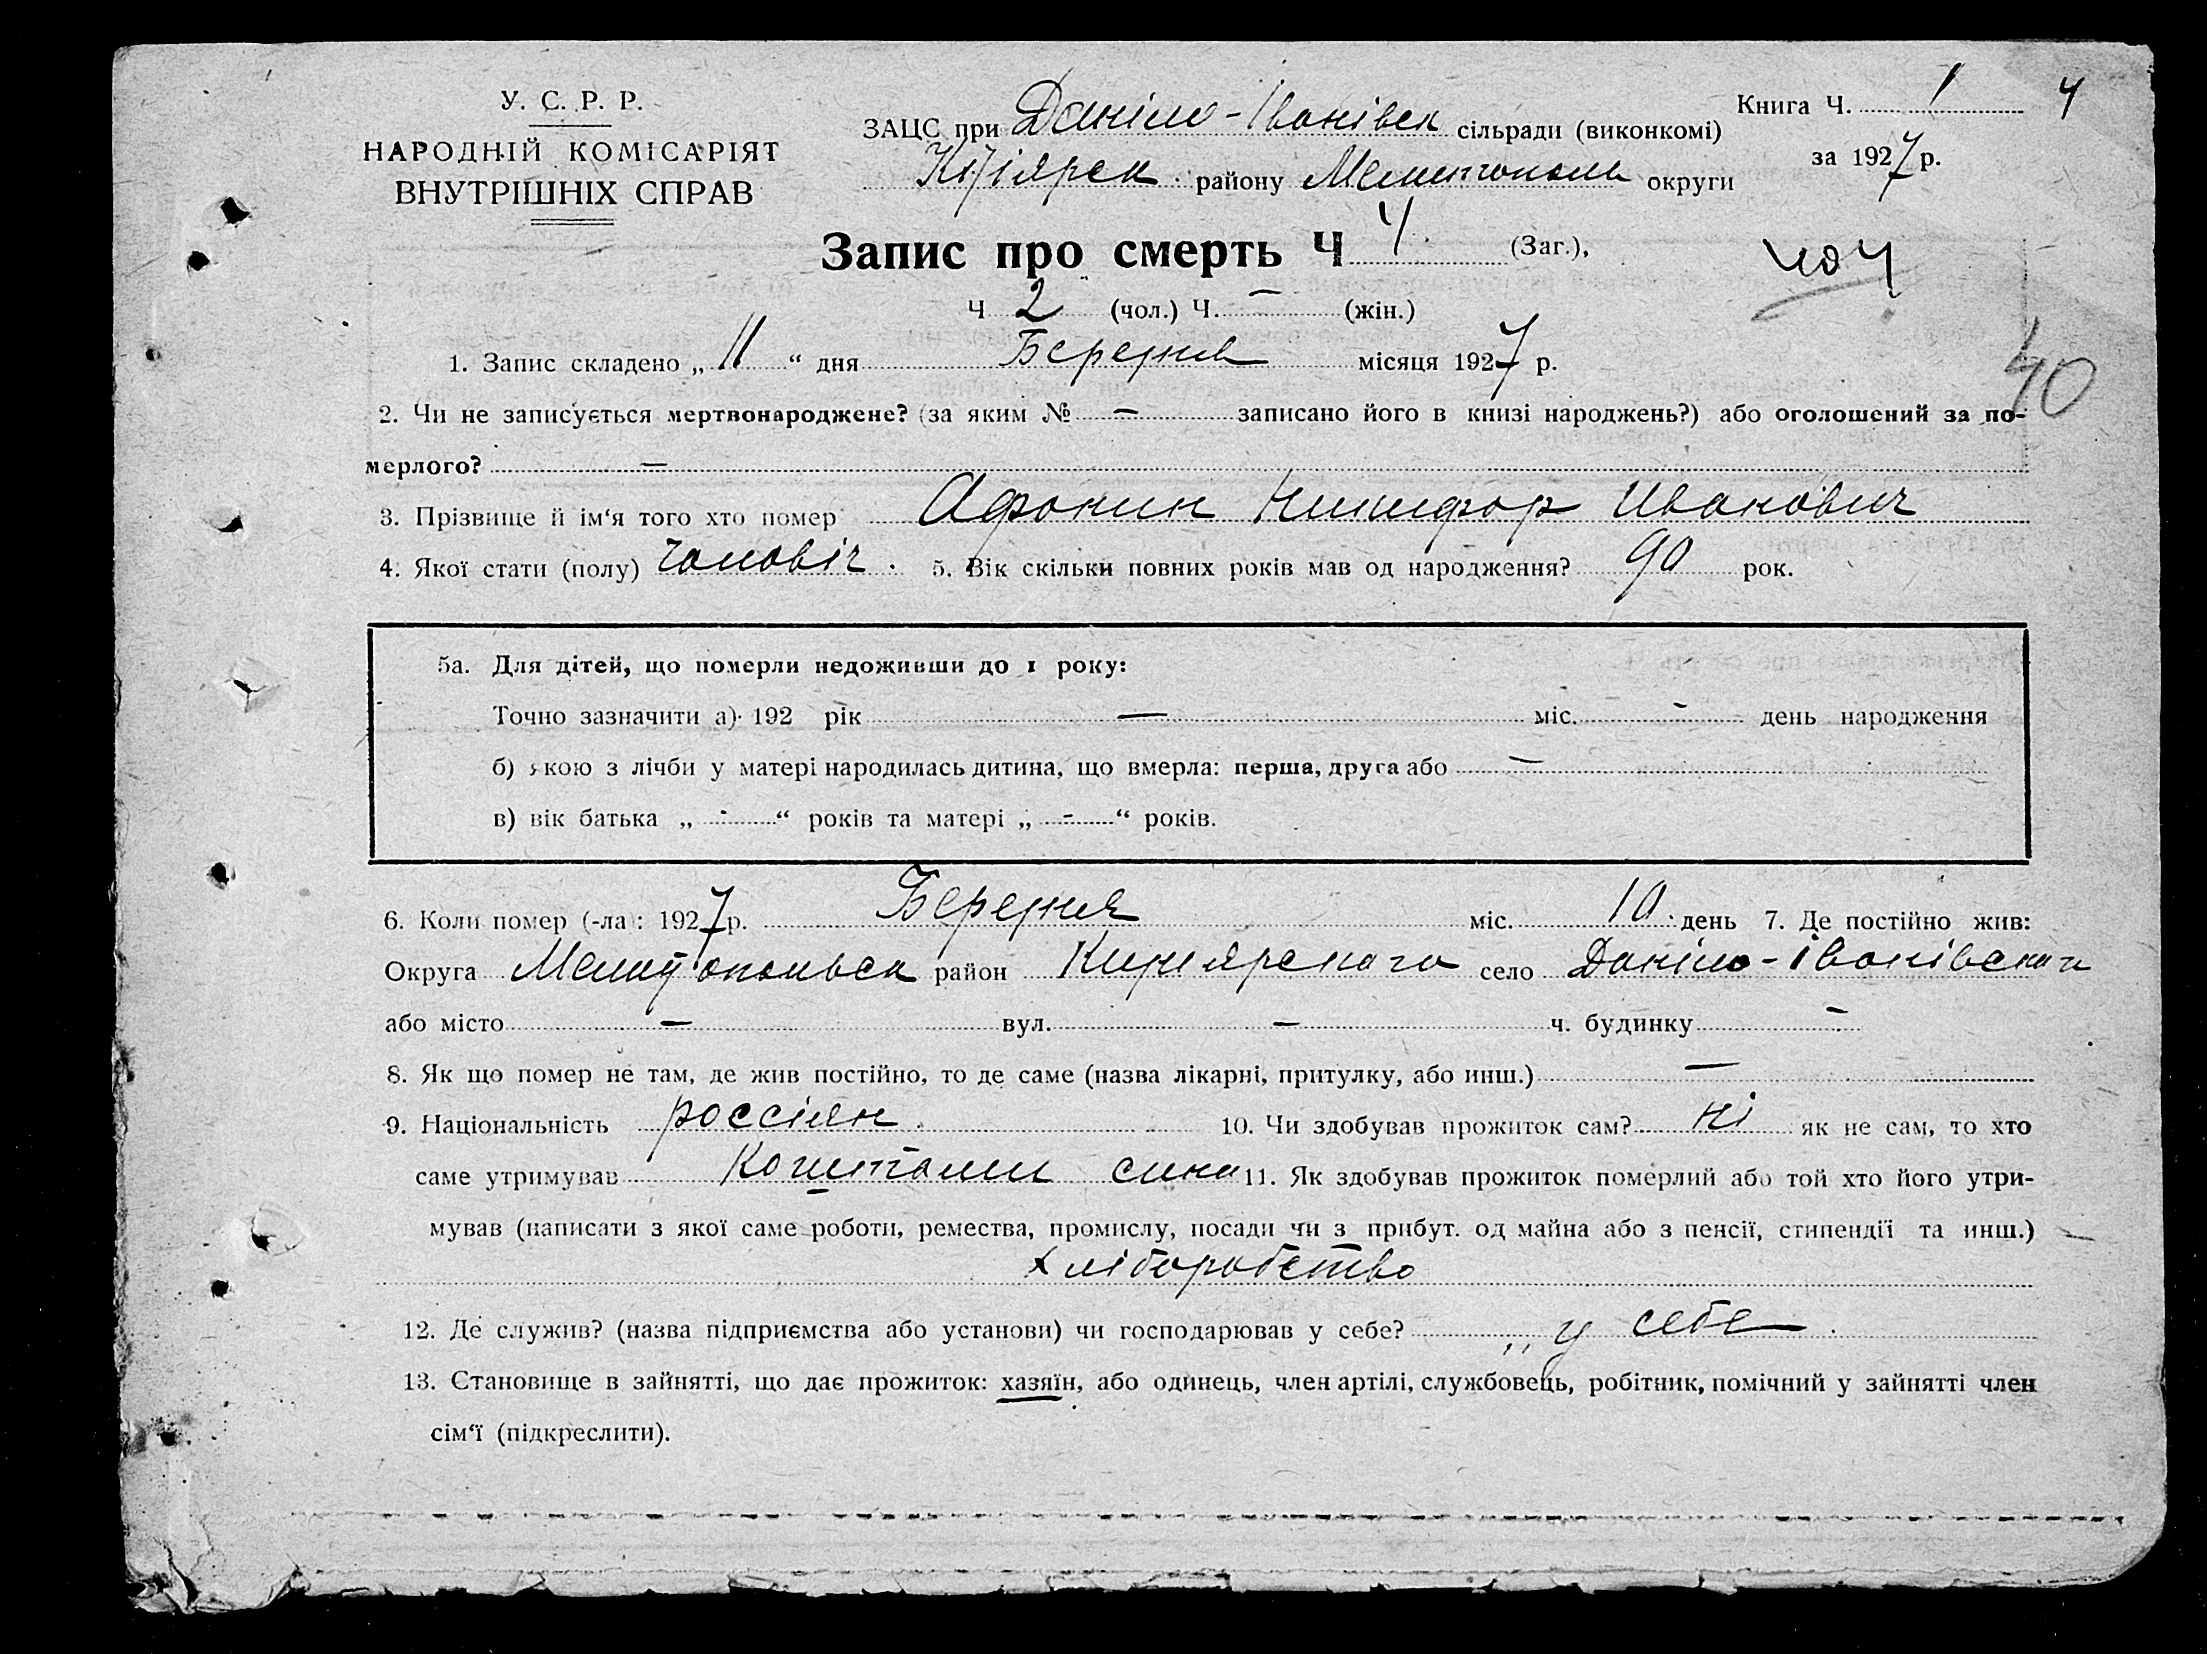 У. С. Р. Р.
НАРОДНІЙ КОМІСАРІЯТ
ВНУТРІШНІХ СПРАВ
ЗАЦС при Даніло-Іванівск сільради (виконкомі)
Кизіярск району Мелитополь округи
Книга Ч. 1 4
за 1927 р.
Запис про смерть Ч 4 (Заг.),
Ч 2 (чол.) Ч. — (жін.)
1. Запис складено „ 11 “ дня Березня місяця 1927 р.
40
2. Чи не записується мертвонароджене? (за яким № — записано його в книзі народжень?) або оголошений за по-
мерлого? —
3. Прізвище й ім‘я того хто помер Афонин Никифор Иванович
4. Якої стати (полу) чоловіч. 5. Вік скільки повних років мав од народження? 90 рок.
5а. Для дітей, що померли недоживши до 1 року:
Точно зазначити а) 192 рік — міс. - день народження
б) якою з лічби у матері народилась дитина, що вмерла: перша, друга або —
в) вік батька „ - “ років та матері „ - “ років.
6. Коли помер (-ла): 1927 р. Березня міс. 10 день 7. Де постійно жив:
Округа Мелитопольск район Кизиярского село Даніло-Іванівского
або місто — вул. — ч. будинку —
8. Як що помер не там, де жив постійно, то де саме (назва лікарні, притулку, або инш.) —
9. Національність россіян. 10. Чи здобував прожиток сам? ні як не сам, то хто
саме утримував Коштами сина 11. Як здобував прожиток померлий або той хто його утри-
мував (написати з якої саме роботи, ремества, промислу, посади чи з прибут. од майна або з пенсії, стипендії та инш.)
хліборобство
12. Де служив? (назва підприємства або установи) чи господарював у себе? „ у себе.
13. Становище в зайнятті, що дає прожиток: хазяїн, або одинець, член артілі, службовець, робітник, помічний у зайнятті член
сім‘ї (підкреслити).